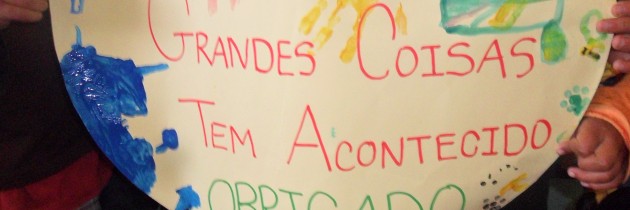 GRANDES COISAS
TEM ACONTECIDO
OBRIGADO